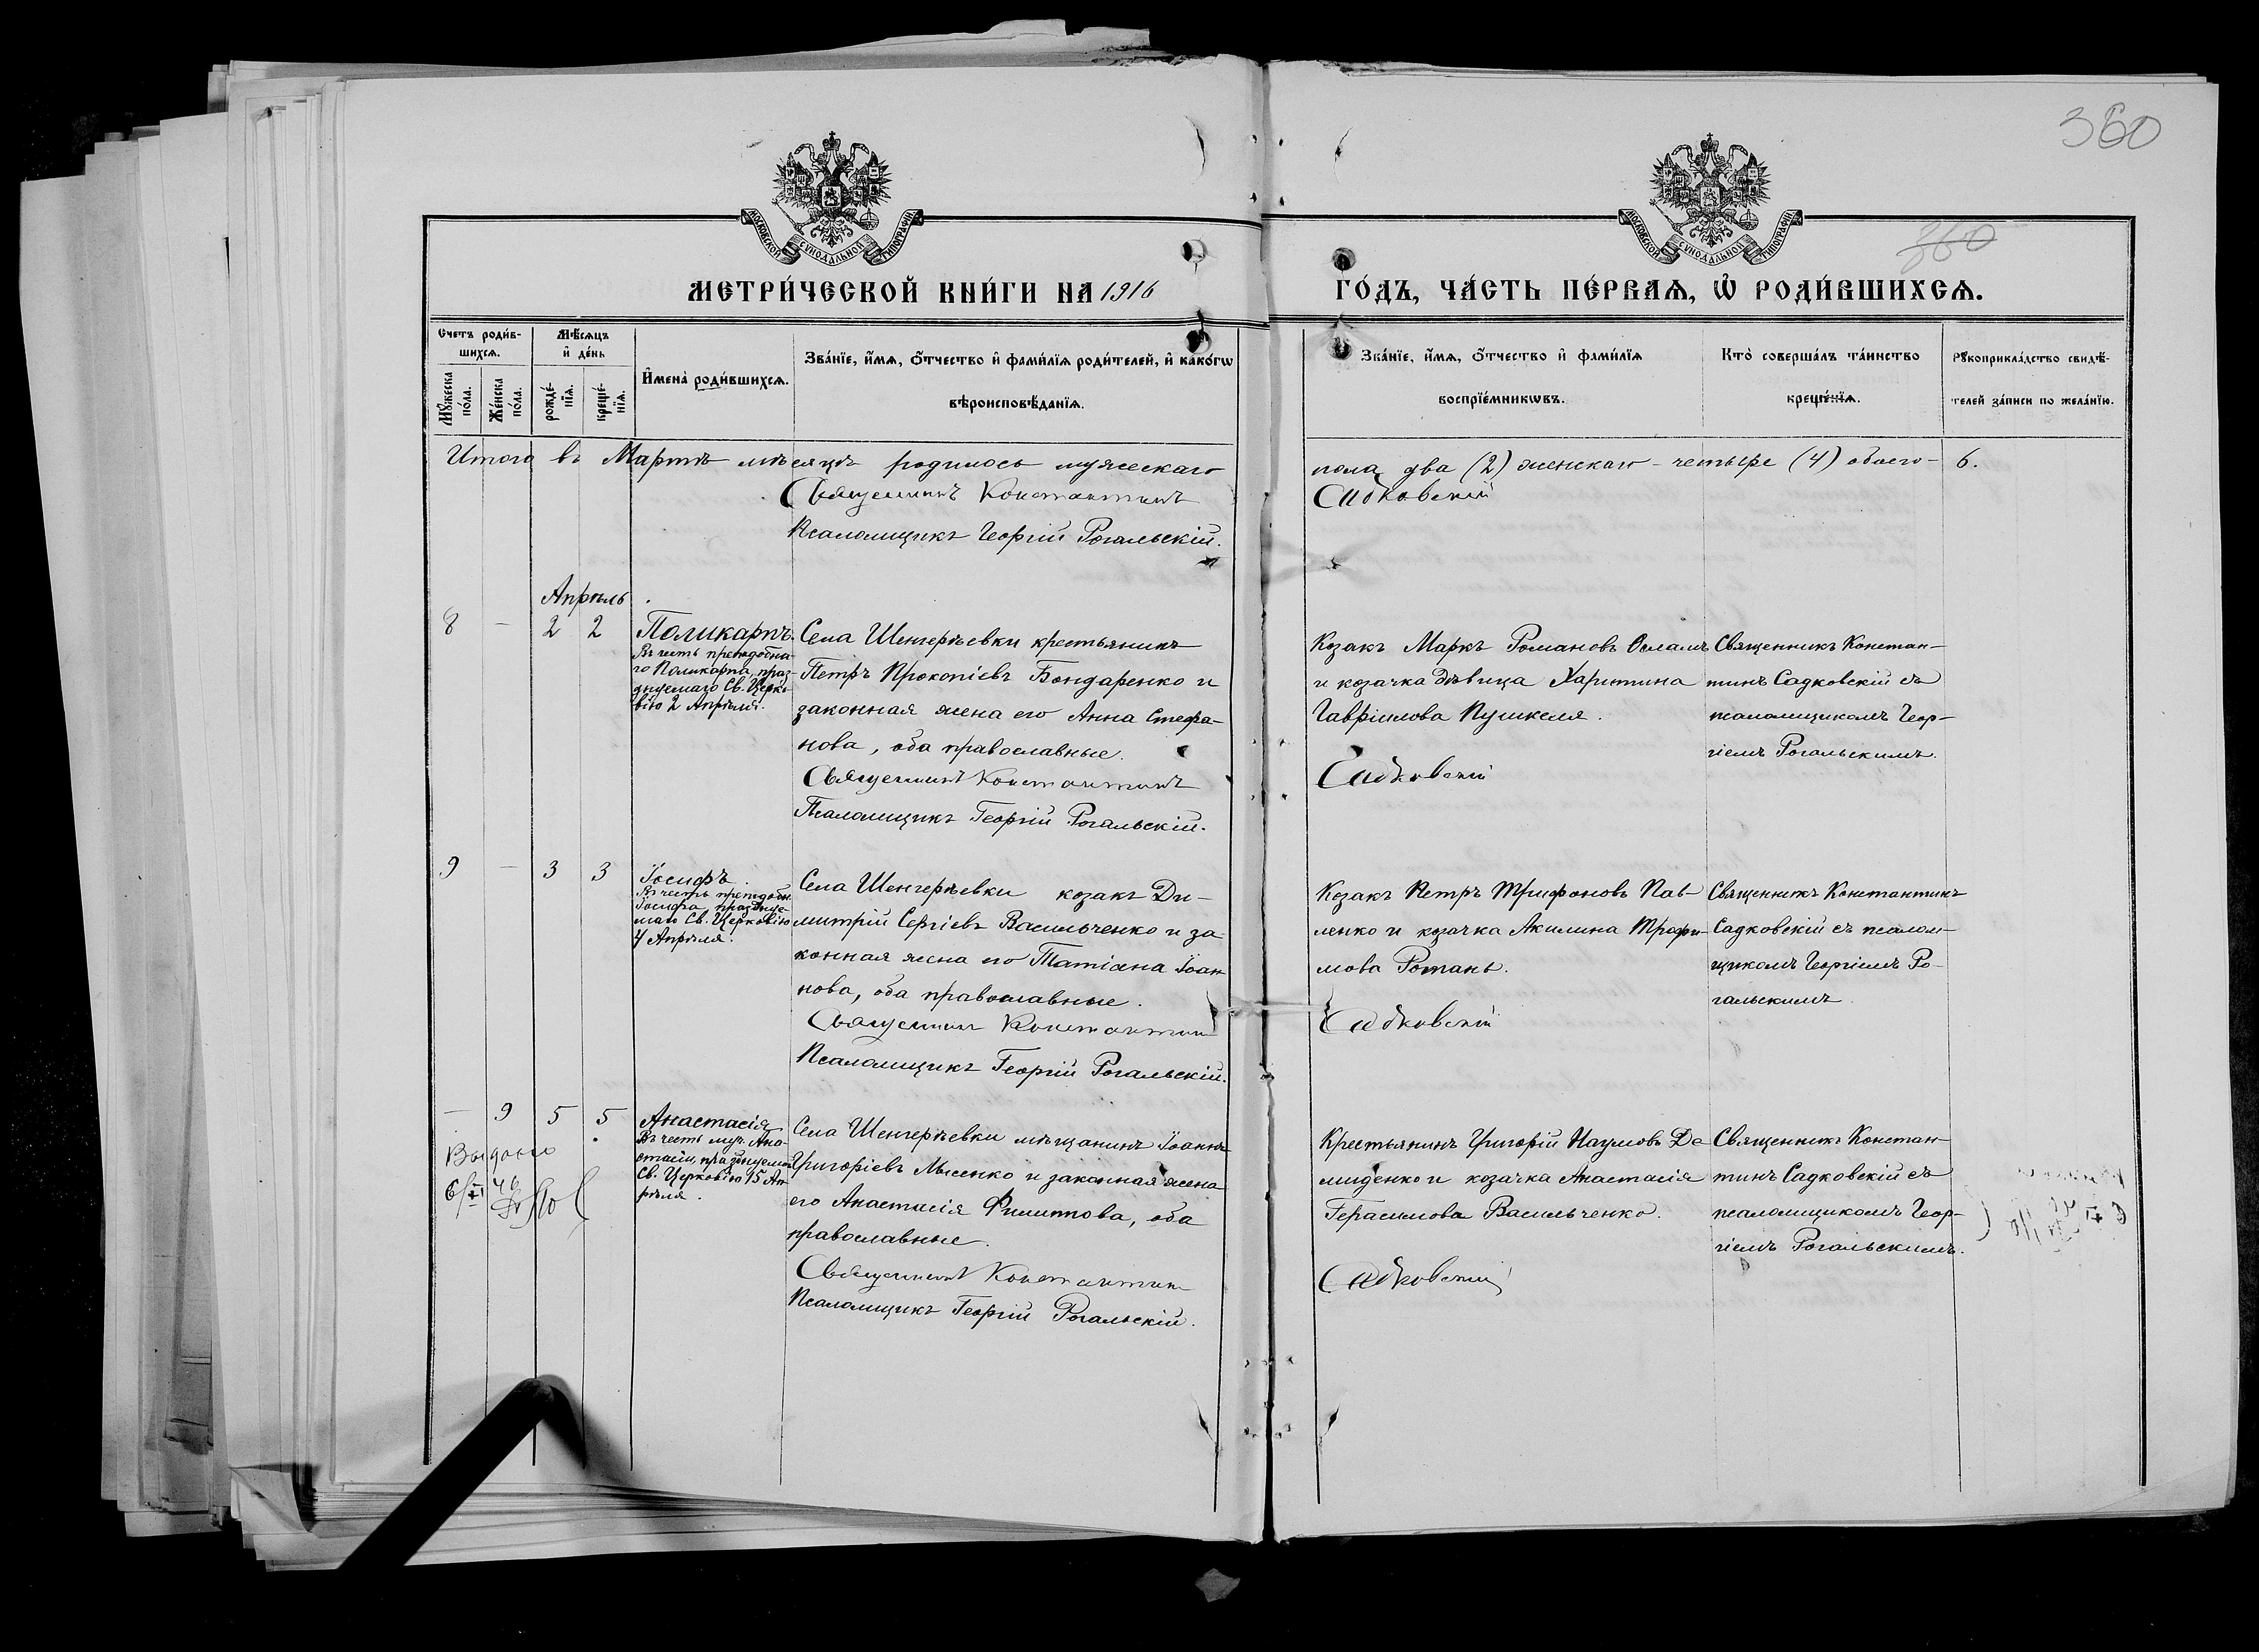 360
360
МОСКОВСКОЙ СѴНОДАЛЬНОЙ ТИПОГРАФІИ
МОСКОВСКОЙ СѴНОДАЛЬНОЙ ТИПОГРАФІИ
МЕТРИ́ЧЕСКОЙ КНИ́ГИ НА 1916
ГО́ДЪ, ЧА́СТЬ ПЕ́РВАѦ, Ѡ҆ РОДИ́ВШИХСѦ.
Счетъ роди́в-
шихсѧ.
Мꙋ́жеска
по́ла.
Же́нска
по́ла.
Мѣ́сѧцъ
и҆ де́нь
рожде́-
нїѧ.
креще́-
нїѧ.
И҆мена̀ роди́вшихсѧ.
Зва́нїе, и҆́мѧ, ѻ҆́тчество и҆ фами́лїѧ роди́телей, и҆ како́гѡ
вѣроисповѣ́данїѧ.
Зва́нїе, и҆́мѧ, ѻ҆́тчество и҆ фами́лїѧ
воспрїе́мникѡвъ.
Кто̀ соверша́лъ та́инство
креще́нїѧ.
Рꙋкоприкла́дство свидѣ́-
телей за́писи по жела́нїю.
Итого въ Мартѣ мѣсяцѣ родилось мужескаго
пола два (2) женскаго - четыре (4) обоего - 6.
Священникъ Константинъ
Садковскій
Псаломщикъ Георгій Рогальскій.
Апрѣль.
8 — 2 2
Поликарпъ.
Въ честь преподобна-
го Поликарпа, праз-
днуемаго Св. Церко-
вію 2 Апрѣля.
Села Шенгерѣевки крестьянинъ
Петръ Прокопіевъ Бондаренко и
законная жена его Анна Стефа-
нова, оба православные.
Священникъ Константинъ
Псаломщикъ Георгій Рогальскій.
Козакъ Маркъ Романовъ
и козачка дѣвица Харитина
Гавріилова Пушкеля.
Садковскій
Священникъ Констан-
тинъ Садковскій съ
псаломщикомъ Геор-
гіемъ Рогальскимъ.
9 — 3 3
Іосифъ.
Въ честь преподобн.
Іосифа, празднуе-
маго Св. Церковію
4 Апрѣля.
Села Шенгерѣевки козакъ Ди-
митрій Сергіевъ Васильченко и за-
конная жена его Татіана Іоан-
нова, оба православные.
Священникъ Константинъ
Псаломщикъ Георгій Рогальскій.
Козакъ Петръ Трифоновъ Пав-
ленко и козачка Акилина Трофи-
мова Ротань.
Садковскій
Священникъ Константинъ
Садковскій съ псалом-
щикомъ Георгіемъ Ро-
гальскимъ
— 9 5 5
Выдано
Анастасія
Въ честь муч. Ана-
стасіи, празднуемой
Св. Церковію 15 Ап-
рѣля.
Села Шенгерѣевки мѣщанинъ Іоаннъ
Григоріевъ Лысенко и законная жена
его Анастасія Филиппова, оба
православные.
Священникъ Константинъ
Псаломщикъ Георгій Рогальскій.
Крестьянинъ Григорій Наумовъ Де-
миденко и козачка Анастасія
Герасимова Васильченко.
Садковскій
Священникъ Констан-
тинъ Садковскій съ
псаломщикомъ Геор-
гіемъ Рогальскимъ.